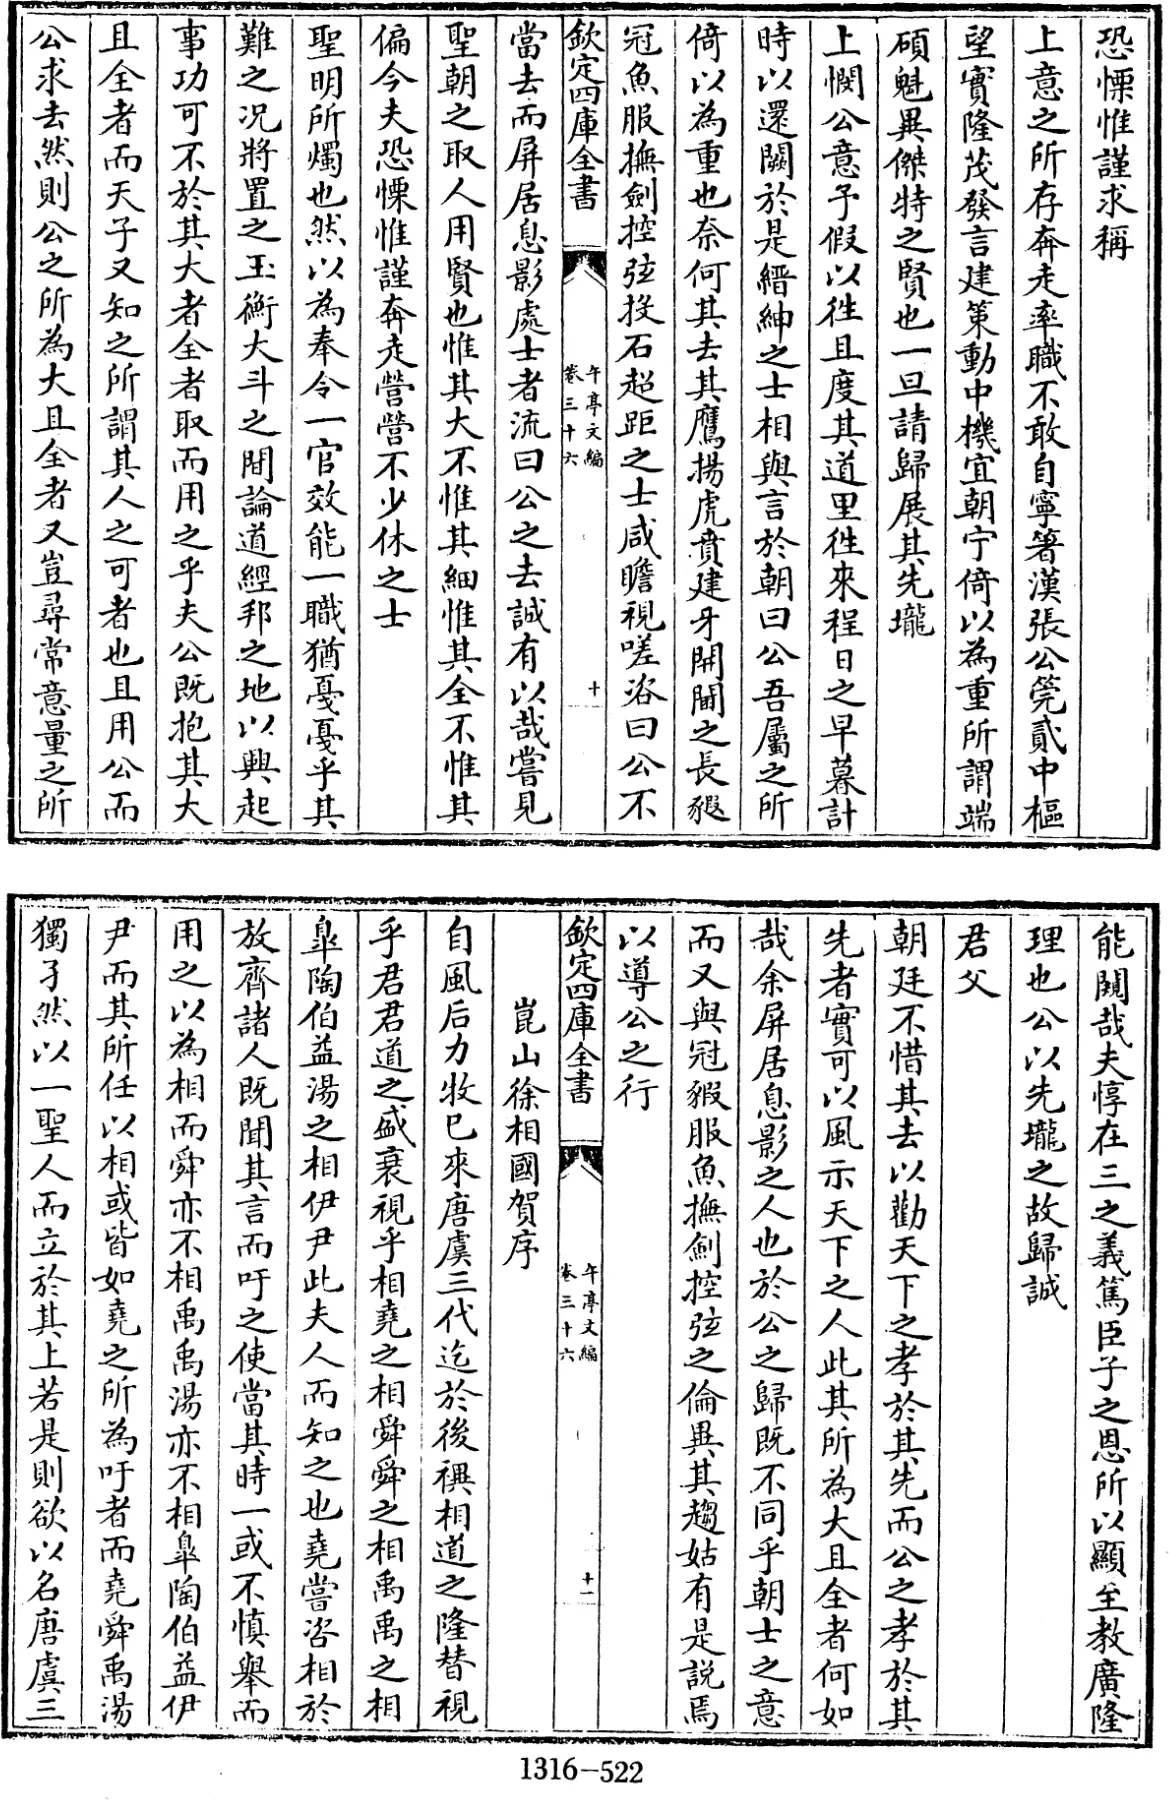 恐慄惟謹求稱
上意之所存奔走率職不敢自寧箸漢張公筦貳中樞
望實隆茂發言建策動中機宜朝宁倚以為重所謂端
碩魁異傑特之賢也一旦請歸展其先壠
上憫公意予假以徃且度其道里徃來程日之早暮計
時以還闕於是縉紳之士相與言於朝曰公吾屬之所
倚以為重也奈何其去其鷹揚虎賁建牙開閫之長貑
冠魚服撫劍控弦投石超距之士咸瞻視嗟洛曰公不
欽定四庫全書
午亭文編
卷三十六
十
當去而屏居息影處士者流曰公之去誠有以哉嘗見
聖朝之取人用賢也惟其大不惟其細惟其全不惟其
偏今夫恐慄惟謹奔走營營不少休之士
聖明所燭也然以為奉令一官效能一職猶戞戞乎其
難之况將置之玉衡大斗之間論道經邦之地以興起
事功可不於其大者全者取而用之乎夫公既抱其大
且全者而天子又知之所謂其人之可者也且用公而
公求去然則公之所為大且全者又豈尋常意量之所
能闚哉夫惇在三之義篤臣子之恩所以顯至教廣隆
理也公以先壠之故歸誠
君父
朝廷不惜其去以勸天下之孝於其先而公之孝於其
先者實可以風示天下之人此其所為大且全者何如
哉余屏居息影之人也於公之歸既不同乎朝士之意
而又與冠貑服魚撫劍控弦之倫異其趨姑有是説焉
以導公之行
欽定四庫全書
午亭文編
卷三十六
十一
崑山徐相國賀序
自風后力牧已來唐虞三代迄於後禩相道之隆替視
乎君君道之盛衰視乎相堯之相舜舜之相禹禹之相
臯陶伯益湯之相伊尹此夫人而知之也堯嘗咨相於
放齊諸人既聞其言而吁之使當其時一或不慎舉而
用之以為相而舜亦不相禹禹湯亦不相臯陶伯益伊
尹而其所任以相或皆如堯之所為吁者而堯舜禹湯
獨孑然以一聖人而立於其上若是則欲以名唐虞三
1316-522